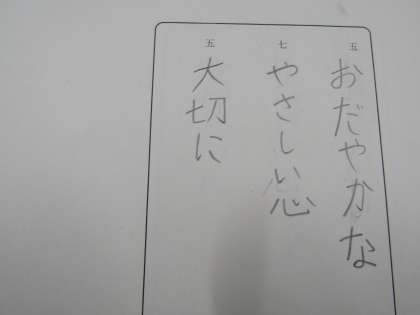 五
おだやかな
七
やさしい心
五
大切に